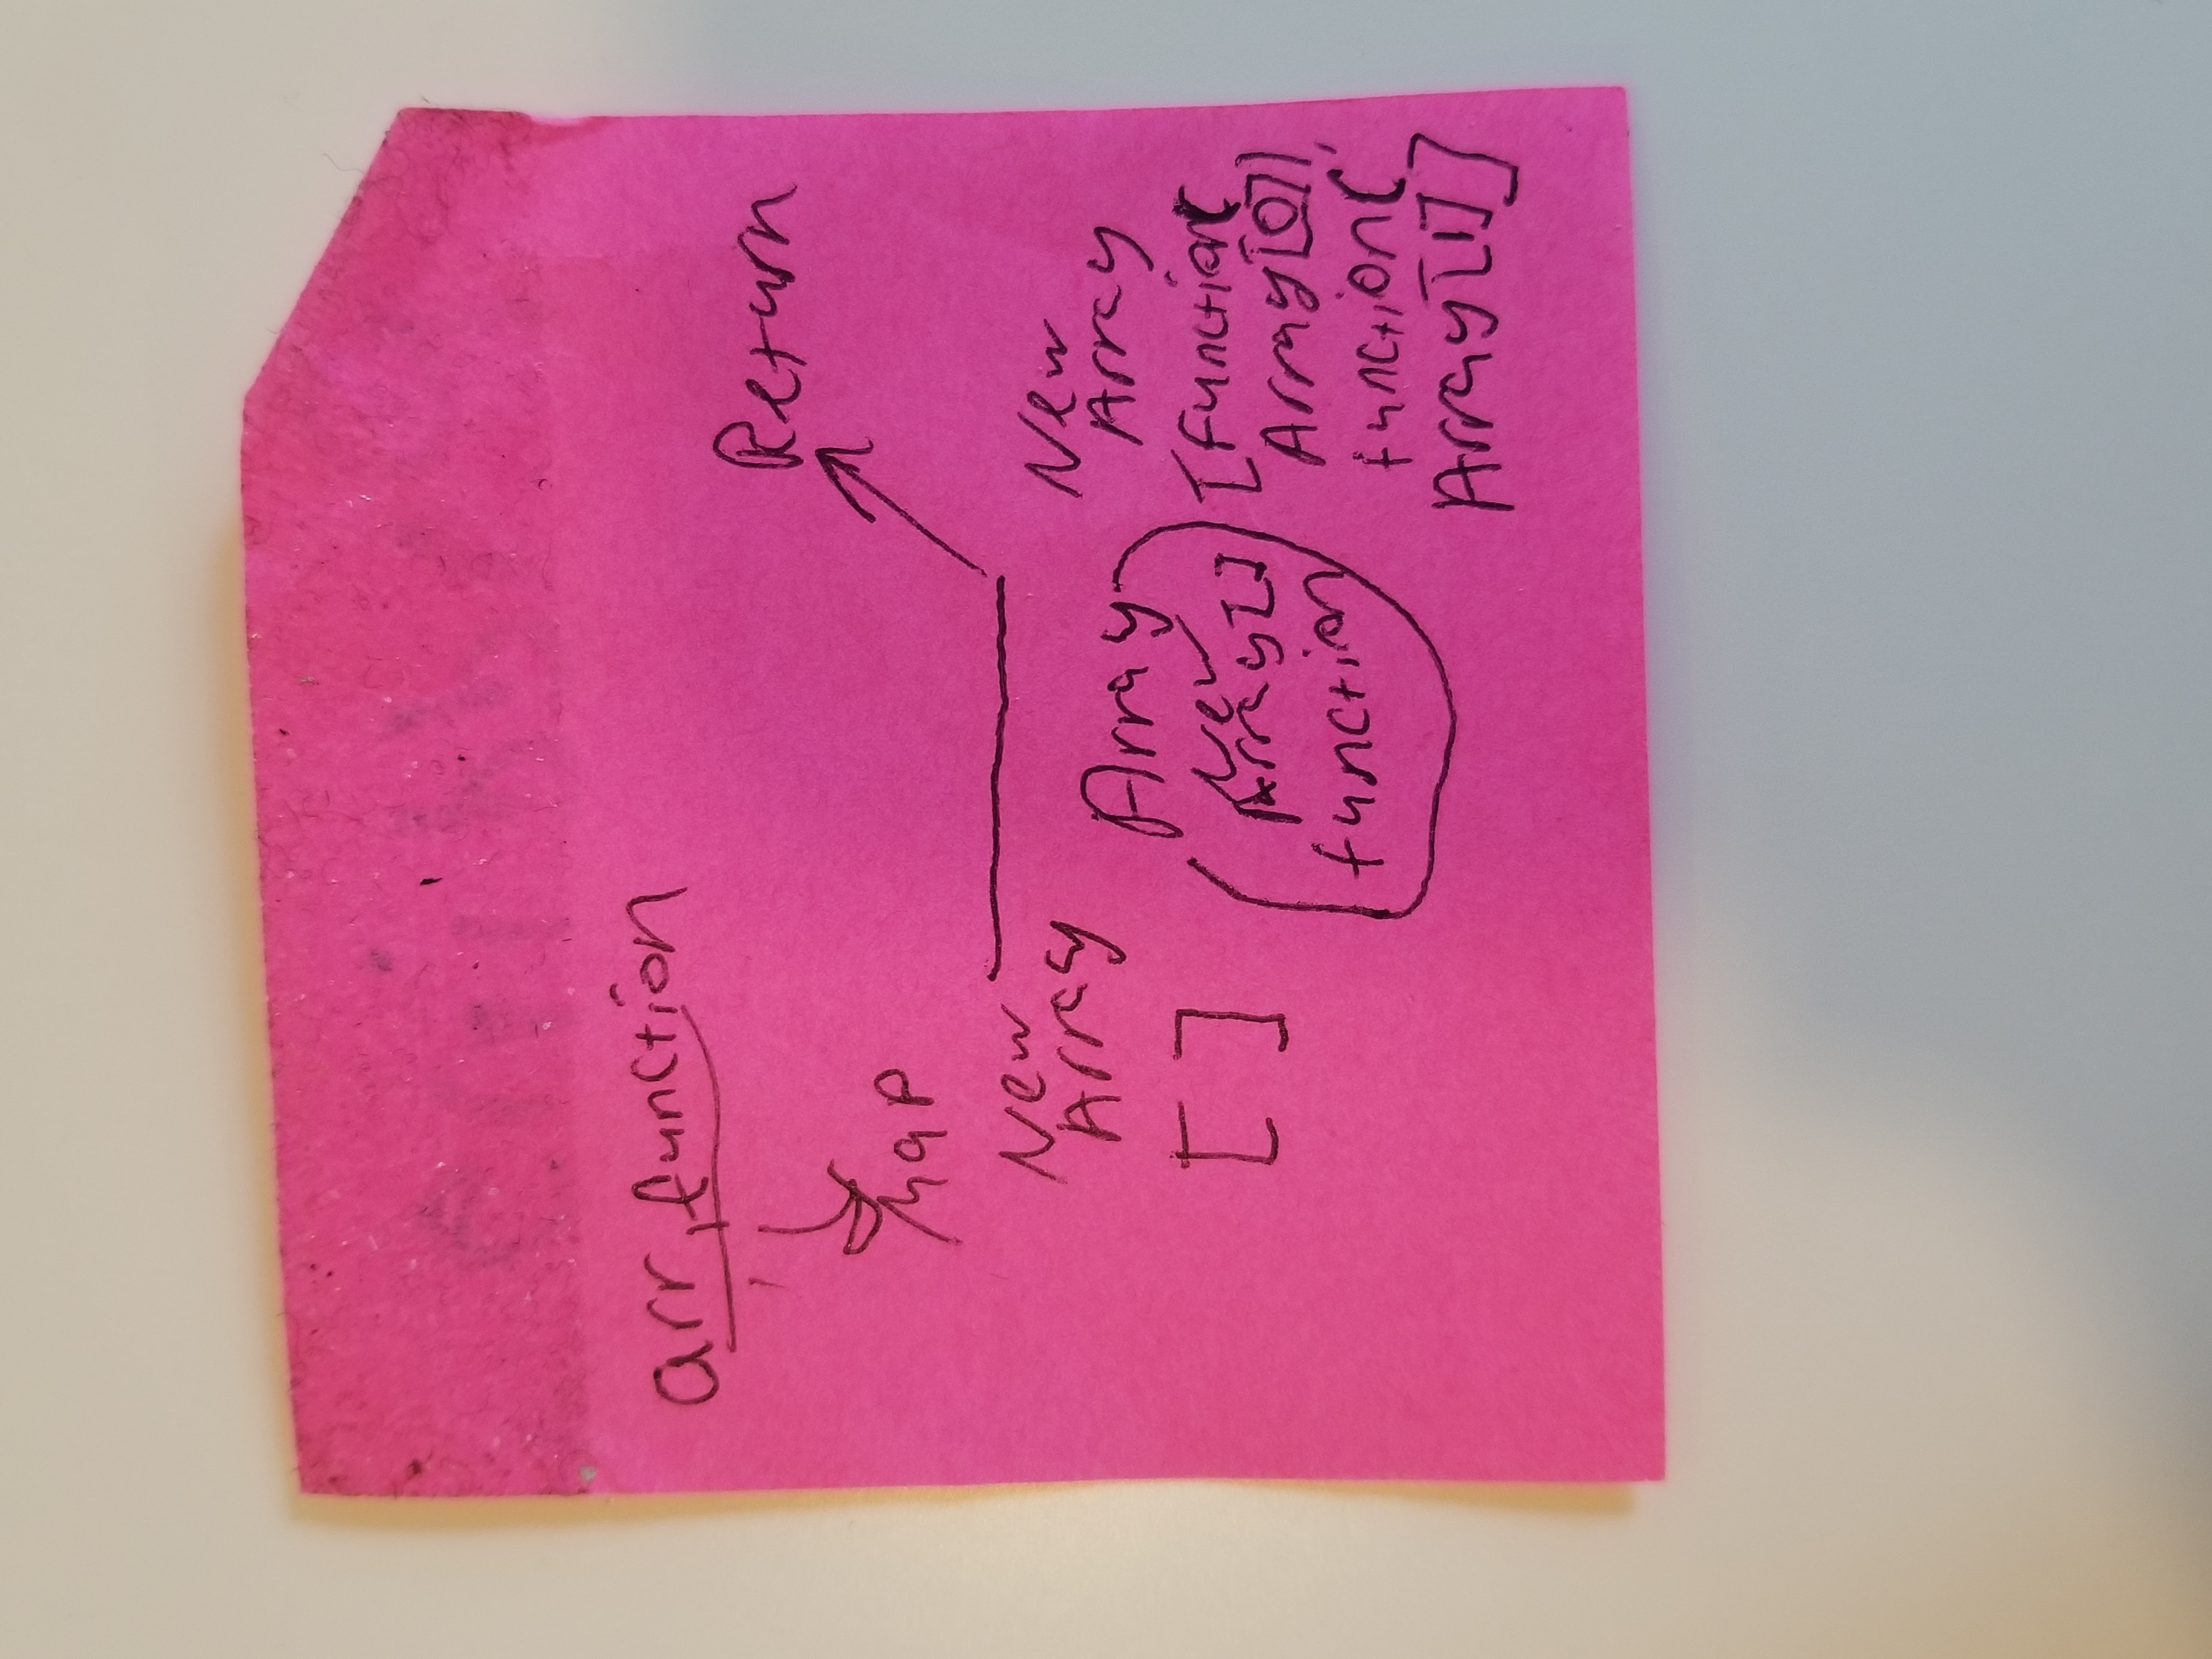 arr, function
map
Return
New
Array
[ ]
Array
New
Array[]
function
New
Array
[function(
Array[0]),
function(
Array[1]]